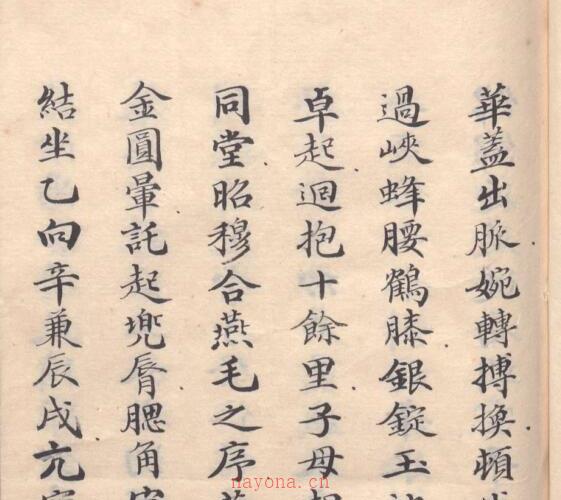 華蓋出脈婉轉搏換頓
過峽蜂腰鶴膝銀錠玉
卓起迴抱十餘里子母
同堂昭穆合燕毛之序
金圓暈託起兜脣腮角
結坐乙向辛兼辰戌亢
nayona.cn